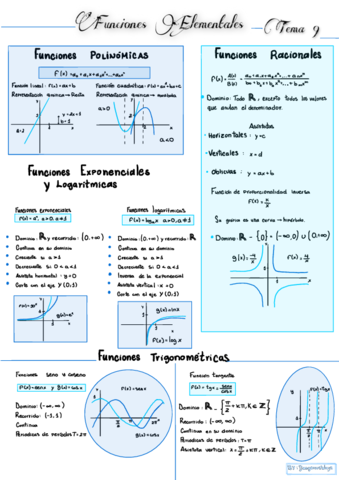 Funciones Elementales Tema 9
Funciones Polinómicas
f(x)=a₀+a₁x+a₂x²+...+aₙxⁿ
Función lineal: f(x)=ax+b
Representación gráfica → Recta
Función cuadrática: f(x)=ax²+bx+c
Representación gráfica → parábola
a>0
a<0
Funciones Racionales
Dominio: Todo ℝ, excepto todos los valores
que anulan el denominador.
Asíntotas
Horizontales: y=c
Verticales: x=d
Oblicuas: y=ax+b
Función de proporcionalidad inversa
Su gráfica es una curva → hipérbola.
Dominio: ℝ - {0} = (-∞,0) ∪ (0,+∞)
Funciones Exponenciales
y Logarítmicas
Funciones exponenciales
f(x)=aˣ, a>0, a≠1
Dominio: ℝ y recorrido: (0,+∞)
Continua en su dominio
Creciente si a>1
Decreciente si 0<a<1
Asíntota horizontal: y=0
Corta con el eje Y (0,1)
Funciones logarítmicas
f(x)=logₐx a>0, a≠1
Dominio: (0,+∞) y recorrido: ℝ
Continua en su dominio
Creciente si a>1
Decreciente si 0<a<1
Inversa de la exponencial
Asíntota vertical: x=0
f(x)=log x
Funciones Trigonométricas
Funciones seno y coseno
f(x)=senx y g(x)=cosx
Dominio: (-∞,∞)
Recorrido: [-1,1]
Continua
Periódicas de período: T=2π
f(x)=senx
g(x)=cosx
Función tangente
f(x)=tgx=senx/cosx
Dominio: ℝ - {π/2+κπ, κ∈ℤ}
Recorrido: (-∞,∞)
Continua en su dominio
Periódicas de período: T=π
Asíntota vertical: x=π/2+κπ, κ∈ℤ
f(x)=tgx